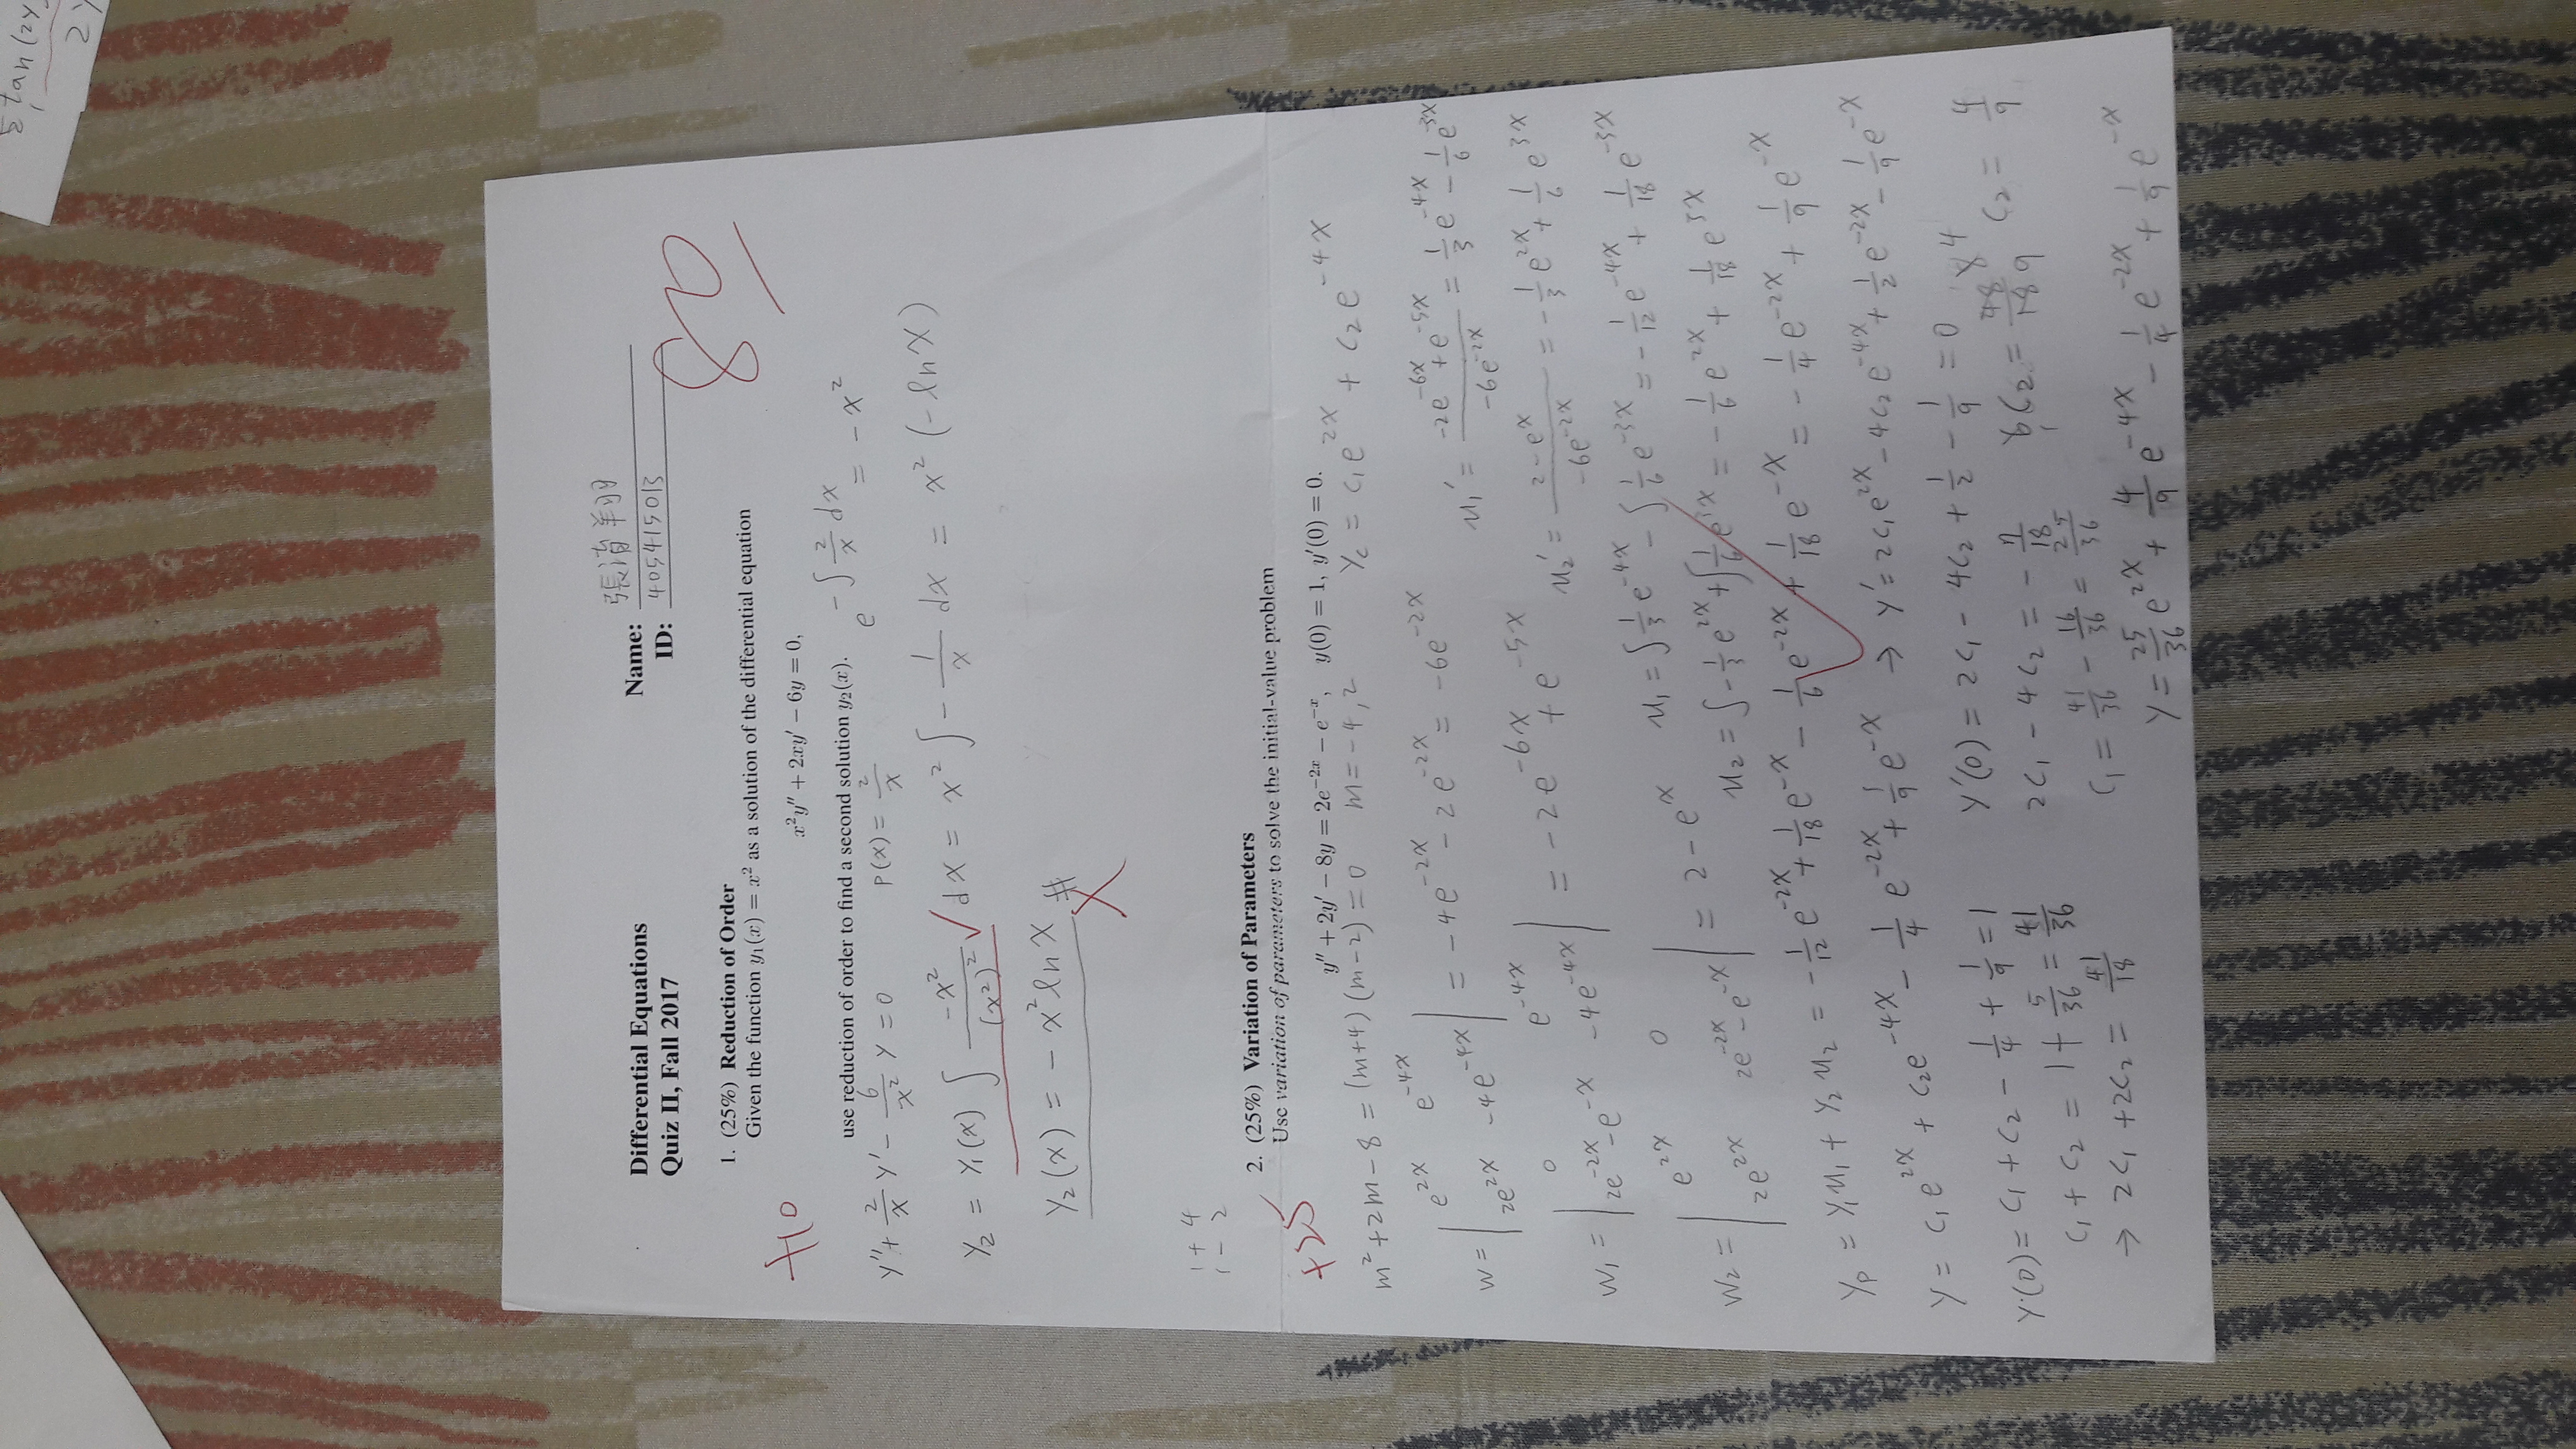 ½ tan (2y
2y
Differential Equations
Quiz II, Fall 2017
Name: 張清翔
ID: 405415013
80
1. (25%) Reduction of Order
Given the function y₁(x) = x² as a solution of the differential equation
+10
x²y″ + 2xy′ − 6y = 0,
use reduction of order to find a second solution y₂(x).
e^(-∫ 2/x dx) = -x²
y″ + 2/x y′ - 6/x² y = 0 P(x) = 2/x
y₂ = y₁(x) ∫ -x²/(x²)² ✓ dx = x² ∫ - 1/x dx = x² (-ln x)
y₂(x) = - x² ln x #
X
1 + 4
1 - 2
2. (25%) Variation of Parameters
Use variation of parameters to solve the initial-value problem
+25
y″ + 2y′ − 8y = 2e^(−2x) − e^(−x), y(0) = 1, y′(0) = 0.
m² + 2m - 8 = (m+4)(m-2) = 0 m = -4, 2 yc = c₁e^(2x) + c₂e^(-4x)
W = | e^(2x) e^(-4x) | 2e^(2x) -4e^(-4x) | = -4e^(-2x) - 2e^(-2x) = -6e^(-2x)
u₁′ = (-2e^(-6x) + e^(-5x))/(-6e^(-2x)) = 1/3 e^(-4x) - 1/6 e^(-3x)
W₁ = | 0 e^(-4x) | 2e^(-2x) - e^(-x) -4e^(-4x) | = -2e^(-6x) + e^(-5x)
u₂′ = (2 - e^x)/(-6e^(-2x)) = -1/3 e^(2x) + 1/6 e^(3x)
W₂ = | e^(2x) 0 | 2e^(2x) 2e^(-2x) - e^(-x) | = 2 - e^x
u₁ = ∫ 1/3 e^(-4x) - ∫ 1/6 e^(-3x) = - 1/12 e^(-4x) + 1/18 e^(-3x)
u₂ = ∫ -1/3 e^(2x) + ∫ 1/6 e^(3x) = - 1/6 e^(2x) + 1/18 e^(3x)
yp = y₁u₁ + y₂u₂ = - 1/12 e^(-2x) + 1/18 e^(-x) - 1/6 e^(-2x) + 1/18 e^(-x) = - 1/4 e^(-2x) + 1/9 e^(-x)
y = c₁e^(2x) + c₂e^(-4x) - 1/4 e^(-2x) + 1/9 e^(-x) → y′ = 2c₁e^(2x) - 4c₂e^(-4x) + 1/2 e^(-2x) - 1/9 e^(-x)
y(0) = c₁ + c₂ - 1/4 + 1/9 = 1 y′(0) = 2c₁ - 4c₂ + 1/2 - 1/9 = 0
c₁ + c₂ = 1 + 5/36 = 41/36 2c₁ - 4c₂ = - 7/18 6c₂ = 48/18 c₂ = 4/9
→ 2c₁ + 2c₂ = 41/18 c₁ = 41/36 - 16/36 = 25/36
y = 25/36 e^(2x) + 4/9 e^(-4x) - 1/4 e^(-2x) + 1/9 e^(-x)